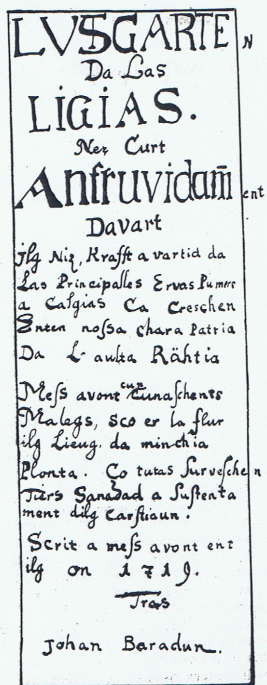 LVSTGARTEN
Da Las
LIGIAS.
Nez Curt
Anfruvidament
Davart
ilg Niz, Krafft a vartid da
Las Principalles Ervas Pumera
a Caſgias Ca Creschen
Enten noſſa chara Patria
Da L'aulta Rähtia
Meſs avont cun Cunaſchents
Malegs, ſco er la flur
ilg Lieug da minchia
Plonta. Co tutas Surveſchen
Tiers Sanadad a Suſtenta
ment dilg Carſtiaun.
Scrit a meſs avont ent
ilg on 1719.
Tras
Johan Baradun.